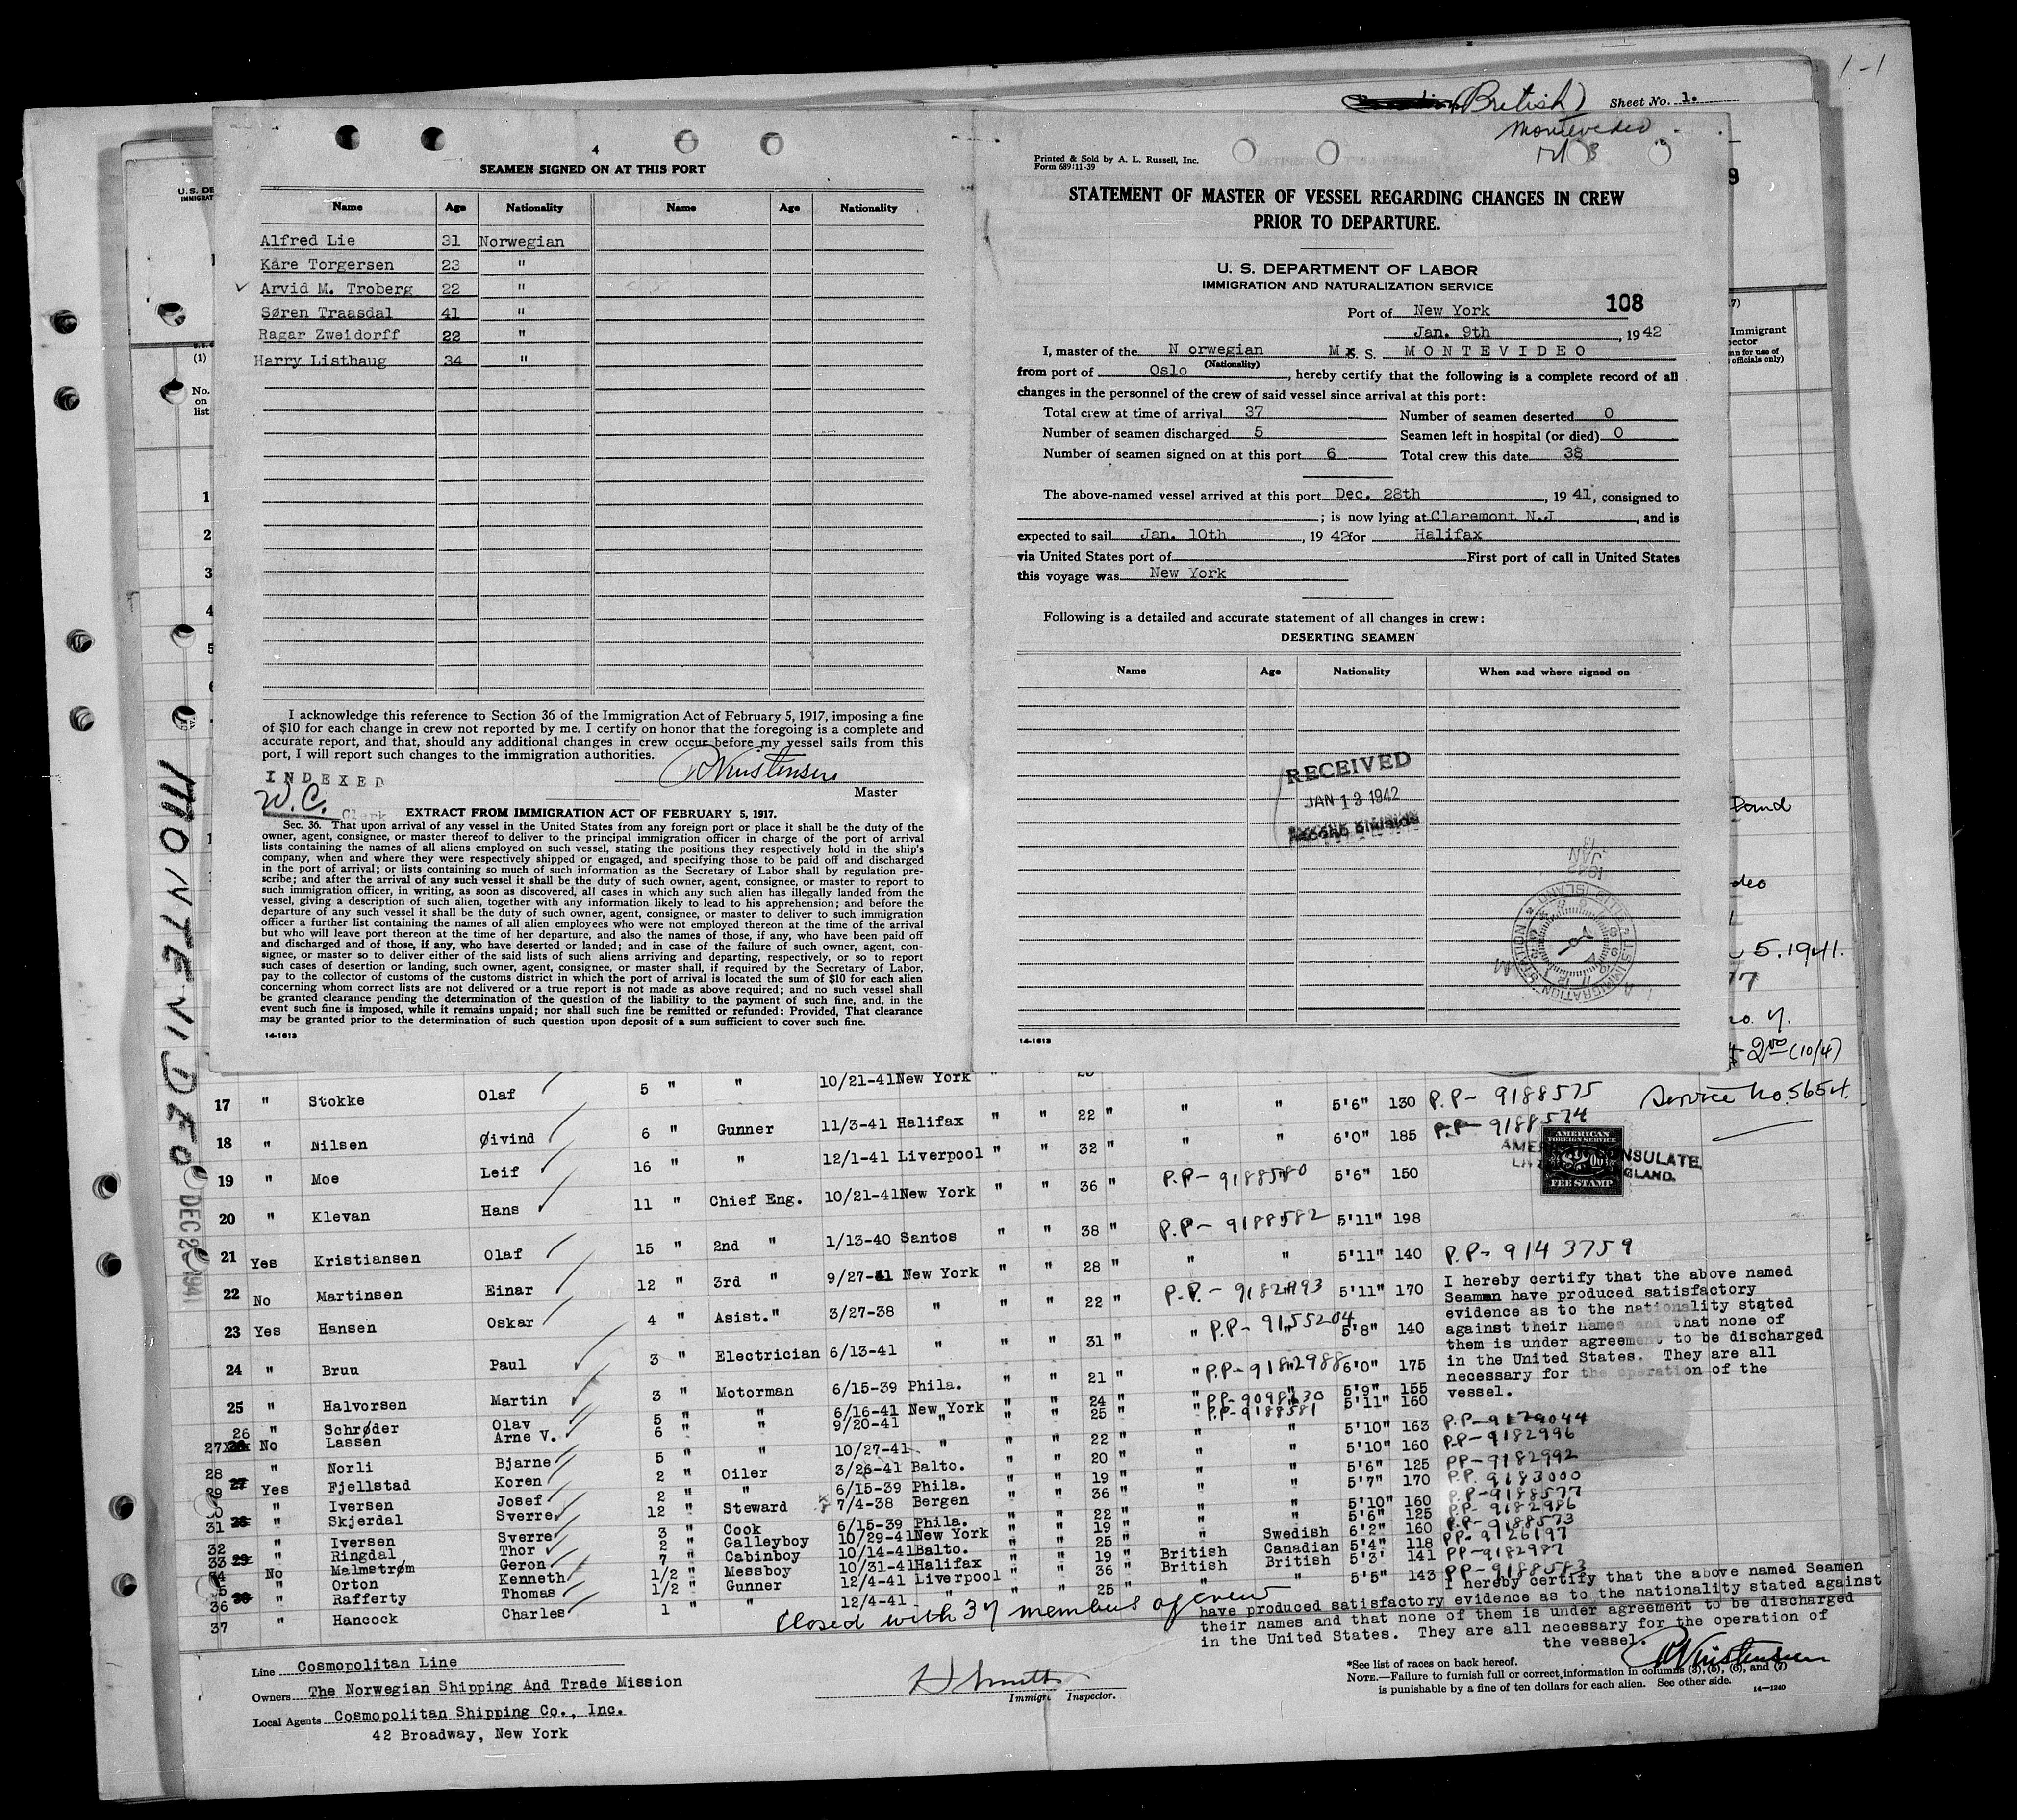 1-1
(British)
Sheet No. 1.
Montevideo
4
SEAMEN SIGNED ON AT THIS PORT
Name Age Nationality Name Age Nationality
Alfred Lie 31 Norwegian
Kåre Torgersen 23 "
Arvid M. Troberg 22 "
Søren Traasdal 41 "
Ragar Zweidorff 22 "
Harry Listhaug 34 "
I acknowledge this reference to Section 36 of the Immigration Act of February 5, 1917, imposing a fine
of $10 for each change in crew not reported by me. I certify on honor that the foregoing is a complete and
accurate report, and that, should any additional changes in crew occur before my vessel sails from this
port, I will report such changes to the immigration authorities.
INDEXED
W.C. Clerk
Master
EXTRACT FROM IMMIGRATION ACT OF FEBRUARY 5, 1917.
Sec. 36. That upon arrival of any vessel in the United States from any foreign port or place it shall be the duty of the
owner, agent, consignee, or master thereof to deliver to the principal immigration officer in charge of the port of arrival
lists containing the names of all aliens employed on such vessel, stating the positions they respectively hold in the ship's
company, when and where they were respectively shipped or engaged, and specifying those to be paid off and discharged
in the port of arrival; or lists containing so much of such information as the Secretary of Labor shall by regulation pre-
scribe; and after the arrival of any such vessel it shall be the duty of such owner, agent, consignee, or master to report to
such immigration officer, in writing, as soon as discovered, all cases in which any such alien has illegally landed from the
vessel, giving a description of such alien, together with any information likely to lead to his apprehension; and before the
departure of any such vessel it shall be the duty of such owner, agent, consignee, or master to deliver to such immigration
officer a further list containing the names of all alien employees who were not employed thereon at the time of the arrival
but who will leave port thereon at the time of her departure, and also the names of those, if any, who have been paid off
and discharged and of those, if any, who have deserted or landed; and in case of the failure of such owner, agent, con-
signee, or master so to deliver either of the said lists of such aliens arriving and departing, respectively, or so to report
such cases of desertion or landing, such owner, agent, consignee, or master shall, if required by the Secretary of Labor,
pay to the collector of customs of the customs district in which the port of arrival is located the sum of $10 for each alien
concerning whom correct lists are not delivered or a true report is not made as above required; and no such vessel shall
be granted clearance pending the determination of the question of the liability to the payment of such fine, and, in the
event such fine is imposed, while it remains unpaid; nor shall such fine be remitted or refunded: Provided, That clearance
may be granted prior to the determination of such question upon deposit of a sum sufficient to cover such fine.
14-1613
Printed & Sold by A. L. Russell, Inc.
Form 689:11-39
STATEMENT OF MASTER OF VESSEL REGARDING CHANGES IN CREW
PRIOR TO DEPARTURE.
U. S. DEPARTMENT OF LABOR
IMMIGRATION AND NATURALIZATION SERVICE
Port of New York 108
Jan. 9th, 1942
I, master of the N orwegian M. S. MONTEVIDEO
(Nationality)
from port of Oslo, hereby certify that the following is a complete record of all
changes in the personnel of the crew of said vessel since arrival at this port:
Total crew at time of arrival 37 Number of seamen deserted 0
Number of seamen discharged 5 Seamen left in hospital (or died) 0
Number of seamen signed on at this port 6 Total crew this date 38
The above-named vessel arrived at this port Dec. 28th, 1941, consigned to
; is now lying at Claremont N.J, and is
expected to sail Jan. 10th, 1942 for Halifax
via United States port of First port of call in United States
this voyage was New York
Following is a detailed and accurate statement of all changes in crew:
DESERTING SEAMEN
Name Age Nationality When and where signed on
RECEIVED
JAN 13 1942
RECORD DIVISION
1942
JAN 13
14-1613
U. S. DE
IMMIGRAT
(1)
No.
on
list
1
2
3
4
5
Immigrant
officials only)
5.1941.
2.00 (10/4)
Service No. 5654.
MONTEVIDEO
DEC 2 1941
17 " Stokke Olaf 5 " " 10/21-41 New York " " 22 " " " 5'6" 130 P.P- 9188575
18 " Nilsen Øivind 6 " Gunner 11/3-41 Halifax " " 32 " " " 6'0" 185 P.P- 9188574
19 " Moe Leif 16 " " 12/1-41 Liverpool " " 36 " P.P- 9188580 5'6" 150
20 " Klevan Hans 11 " Chief Eng. 10/21-41 New York " " 38 " P.P- 9188582 5'11" 198
21 Yes Kristiansen Olaf 15 " 2nd " 1/13-40 Santos " " 28 " " " 5'11" 140 P.P- 9143759
22 No Martinsen Einar 12 " 3rd " 9/27-41 New York " " 22 " P.P- 9182993 5'11" 170
23 Yes Hansen Oskar 4 " Asist." 3/27-38 " " " 31 " " P.P- 9155204 5'8" 140
24 " Bruu Paul 3 " Electrician 6/13-41 " " " 21 " " P.P- 9182988 6'0" 175
25 " Halvorsen Martin 3 " Motorman 6/15-39 Phila. " " 24 " " 5'9" 155
26 " Schrøder Olav 5 " " 6/16-41 New York " " 25 " " P.P-9188581 5'11" 160
27 No Lassen Arne V. 6 " " 9/20-41 " " " 22 " " " 5'10" 163 P.P-9179044
28 " Norli Bjarne 5 " " 10/27-41 " " " 20 " " " 5'10" 160 P.P-9182996
Yes Fjellstad Koren 2 " Oiler 3/26-41 Balto. " " 19 " " " 5'6" 125 PP-9182992
" Iversen Josef 2 " " 6/15-39 Phila. " " 36 " " " 5'7" 170 P.P. 9183000
31 " Skjerdal Sverre 12 " Steward 7/4-38 Bergen " " 22 " " " 5'10" 160 P.P-9188577
32 " Iversen Sverre 3 " Cook 6/15-39 Phila. " " 19 " " " 5'6" 125 PP-9182986
33 " Ringdal Thor 2 " Galleyboy 10/29-41 New York " " 25 " " Swedish 6'2" 160 PP-9188573
No Malmstrøm Geron 7 " Cabinboy 10/14-41 Balto. " " 19 " British Canadian 5'4" 118 PP-9126197
" Orton Kenneth 1/2 " Messboy 10/31-41 Halifax " " 36 " British British 5'3' 141 PP-9182987
36 " Rafferty Thomas 1/2 " Gunner 12/4-41 Liverpool " " 25 " " " 5'5" 143 PP-9188583
37 " Hancock Charles 1 " " 12/4-41 "
Closed with 37 members of crew
AMERICAN
FOREIGN SERVICE
$2.00
FEE STAMP
NSULATE,
GLAND.
I hereby certify that the above named
Seamen have produced satisfactory
evidence as to the nationality stated
against their names and that none of
them is under agreement to be discharged
in the United States. They are all
necessary for the operation of the
vessel.
I hereby certify that the above named Seamen
have produced satisfactory evidence as to the nationality stated against
their names and that none of them is under agreement to be discharged
in the United States. They are all necessary for the operation of
the vessel.
Line Cosmopolitan Line
Owners The Norwegian Shipping And Trade Mission
Local Agents Cosmopolitan Shipping Co., Inc.
42 Broadway, New York
Immigr. Inspector.
*See list of races on back hereof.
NOTE.—Failure to furnish full or correct information in columns (3), (5), (6), and (7)
is punishable by a fine of ten dollars for each alien. See other side.
14-1240